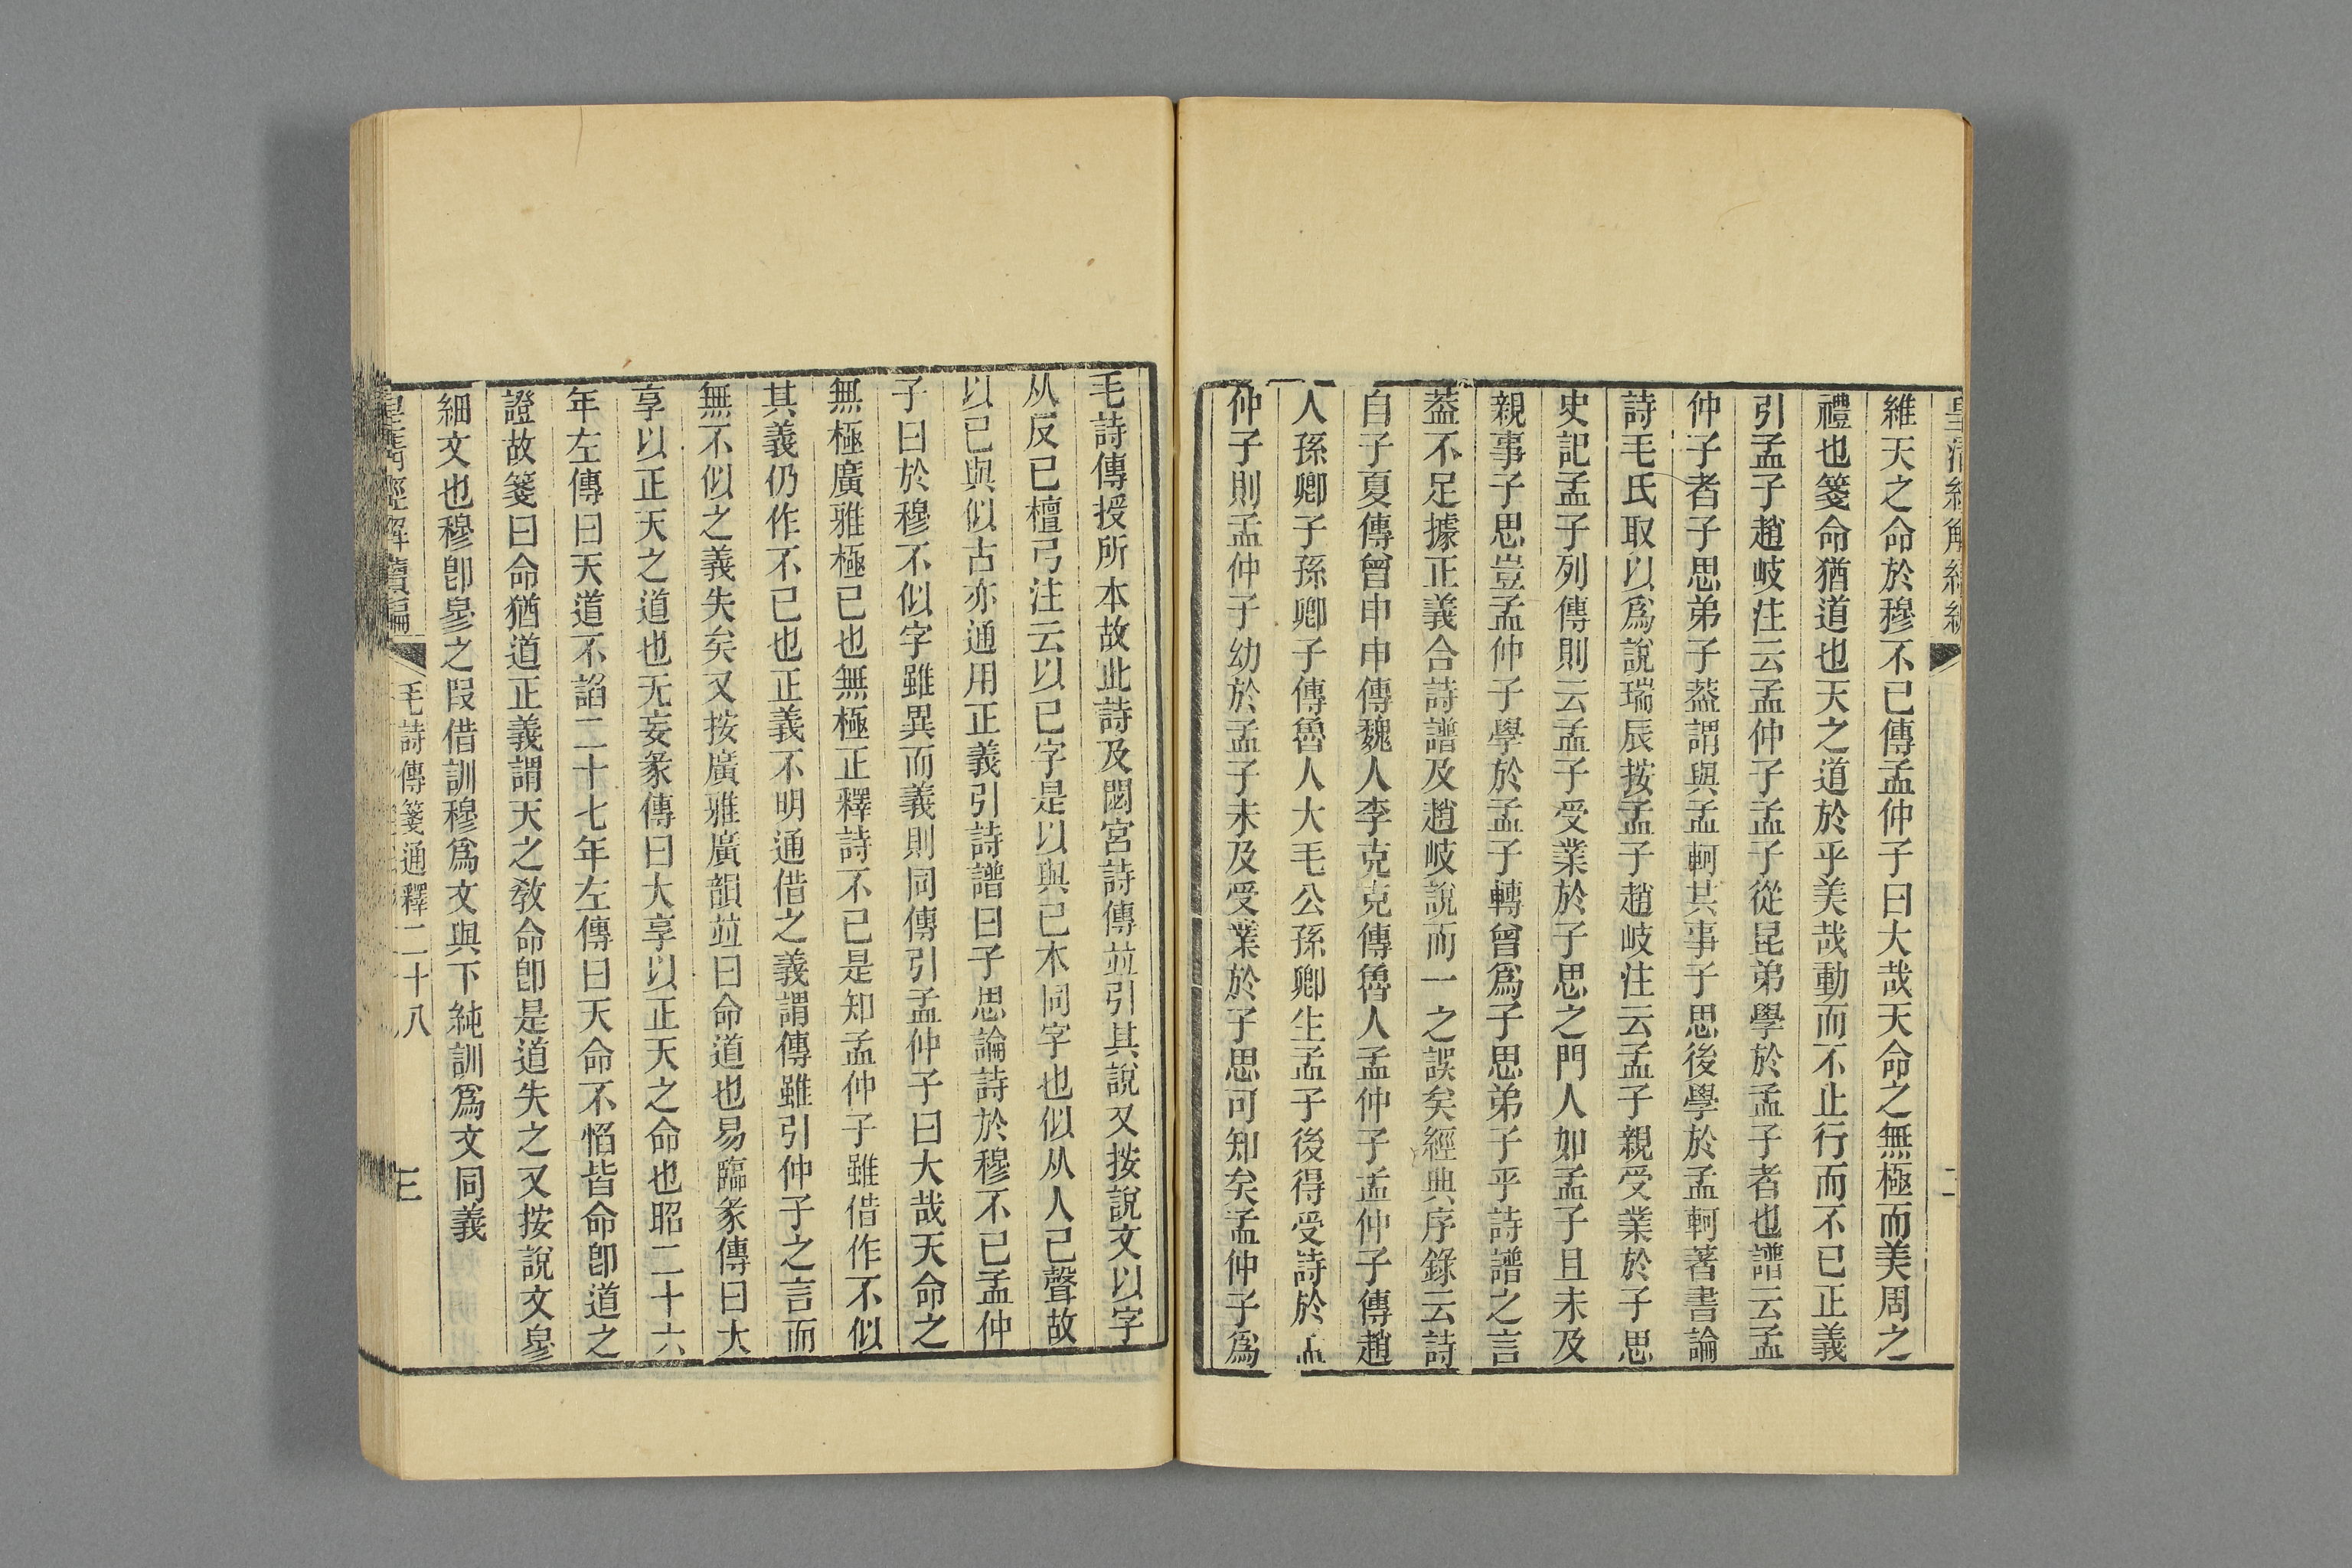 維天之命於穆不已傳孟仲子曰大哉天命之無極而美周之
禮也箋命猶道也天之道於乎美哉動而不止行而不已正義
引孟子趙岐注云孟仲子孟子從昆弟學於孟子者也譜云孟
仲子者子思弟子葢謂與孟軻共事子思後學於孟軻著書論
詩毛氏取以爲說瑞辰按孟子趙岐注云孟子親受業於子思
史記孟子列傳則云孟子受業於子思之門人如孟子且未及
親事子思豈孟仲子學於孟子轉曾爲子思弟子乎詩譜之言
葢不足據正義合詩譜及趙岐說而一之誤矣經典序錄云詩
自子夏傳曾申申傳魏人李克克傳魯人孟仲子孟仲子傳趙
人孫卿子孫卿子傳魯人大毛公孫卿生孟子後得受詩於孟
仲子則孟仲子幼於孟子未及受業於子思可知矣孟仲子爲
毛詩傳授所本故此詩及閟宮詩傳竝引其說又按說文以字
从反已檀弓注云以已字是以與已本同字也似从人已聲故
以已與似古亦通用正義引詩譜曰子思論詩於穆不已孟仲
子曰於穆不似字雖異而義則同傳引孟仲子曰大哉天命之
無極廣雅極已也無極正釋詩不已是知孟仲子雖借作不似
其義仍作不已也正義不明通借之義謂傳雖引仲子之言而
無不似之義失矣又按廣雅廣韻竝曰命道也易臨彖傳曰大
享以正天之道也无妄彖傳曰大享以正天之命也昭二十六
年左傳曰天道不謟二十七年左傳曰天命不慆皆命卽道之
證故箋曰命猶道正義謂天之敎命卽是道失之又按說文㣎
細文也穆卽㣎之叚借訓穆爲文與下純訓爲文同義
皇清經解續編
毛詩傳箋通釋二十八
三